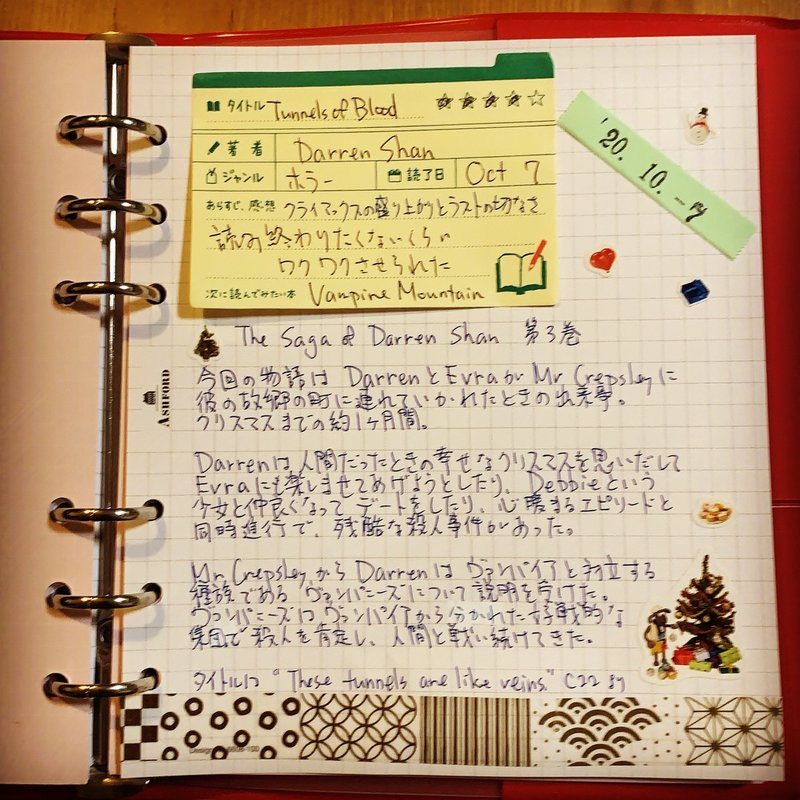 タイトル Tunnels of Blood
著者 Darren Shan
ジャンル ホラー 読了日 Oct 7
あらすじ、感想 クライマックスの盛り上がりとラストの切なさ
読み終わりたくないくらい
ワクワクさせられた
次に読んでみたい本 Vampire Mountain
'20. 10. -7
The Saga of Darren Shan 第3巻
今回の物語は DarrenとEvraが Mr. Crepsleyに
彼の故郷の町に連れていかれたときの出来事。
クリスマスまでの約1ヶ月間。
Darrenは人間だったときの幸せなクリスマスを思いだして
Evraにも楽しませてあげようとしたり、Debbieという
少女と仲良くなってデートをしたり、心暖まるエピソードと
同時進行で、残酷な殺人事件があった。
Mr. Crepsleyから Darrenは ヴァンパイアと対立する
種族である ヴァンパニーズについて説明を受けた。
ヴァンパニーズは ヴァンパイアから分かれた好戦的な
集団で殺人を肯定し、人間と戦い続けてきた。
タイトルは "These tunnels are like veins." C22
ASHFORD